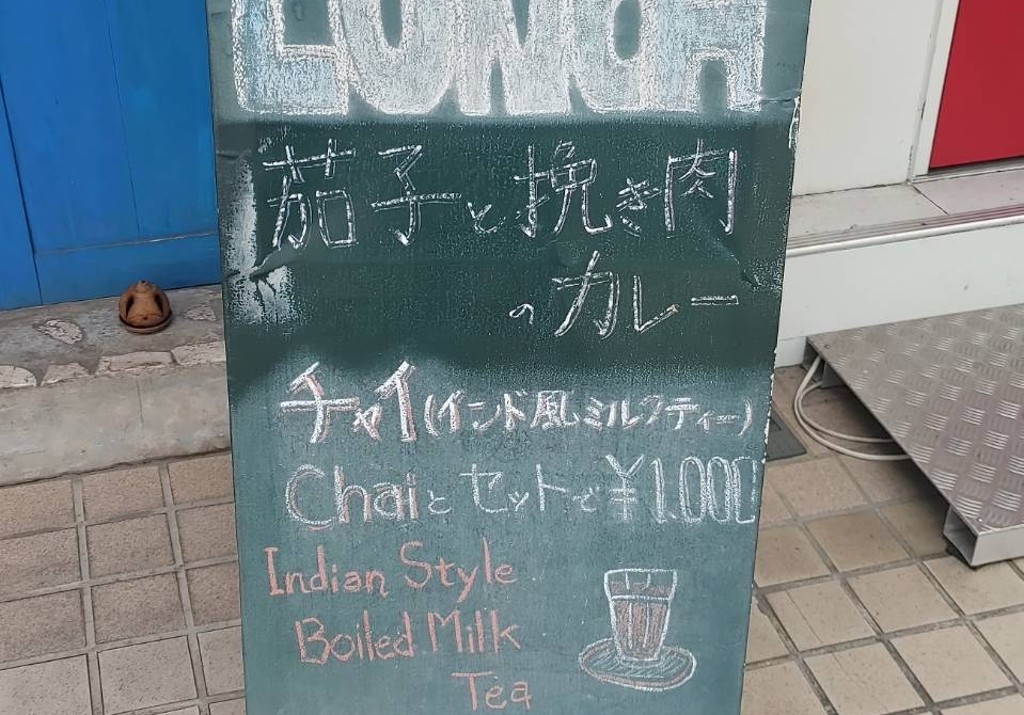 LUNCH
茄子と挽き肉
のカレー
チャイ(インド風ミルクティー)
Chaiとセットで¥1.000
Indian Style
Boiled Milk
Tea